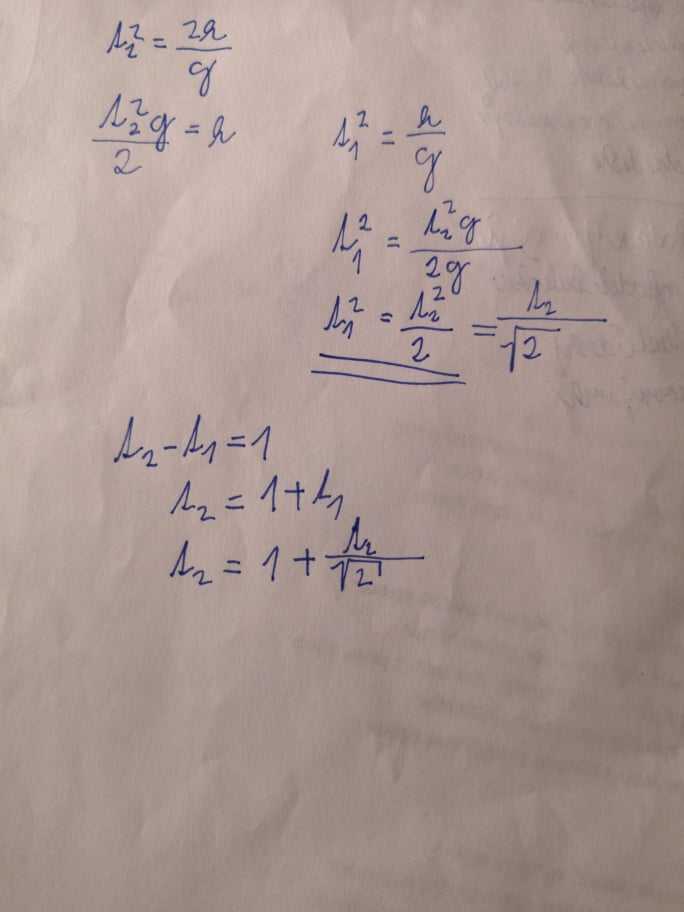 t₂² = 2h/g
t₂²g/2 = h
t₁² = h/g
t₁² = t₂²g/2g
t₁² = t₂²/2 = t₂/√2
t₂ - t₁ = 1
t₂ = 1 + t₁
t₂ = 1 + t₂/√2